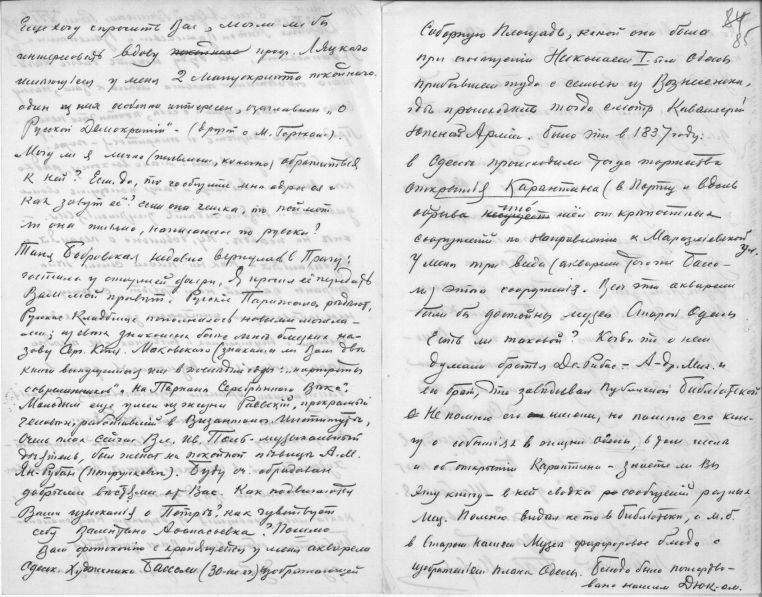 Еще хочу спросить Вас, могли ли бы
интересовать вдову покойного проф. Ляцкого
2 Манускрипта покойного.
один из них особенно интересен, озаглавлен "О
Русской Демократии" - (друг о М. Горьком).
Могу ли я лично (письменно, конечно) обратиться
к ней? Если да, то сообщите мне адрес ея и
как зовут ее? если она чешка, то поймет
ли она письмо, написанное по русски?
Таня Бобровская недавно вернулась в Прагу;
гостила у своей дочери, Я просил ее передать
Вам мой привет. Русские Парижане редеют,
Русское Кладбище пополнилось новыми могила-
ми; из своих знакомых более мне близких на-
зову Серг. Конст. Маковского (знакомы ли Вам две
книги вышедшие в последние годы: "портреты
современников" и "На Парнасе Серебрянного Века".
Молодым еще ушел из жизни Раевский, прекрасный
человек, работавший в Византийском Институте,
Очень плох сейчас Вл. Ив. Поль - музыкальный
деятель, был женат на покойной певице А.М.
Ян-Рубан (Петрункевич). Буду оч. обрадован
добрыми вестями от Вас. Как подвигаются
Ваши изыскания о Петре?, как чувствует
себя Валентина Афанасьевна? Посылаю
Вам фотокопию с хранящейся у меня акварели
Одесск. Художника Бассоли (30-ые гг.) изображающей
84
85
Соборную Площадь, какой она была
при посещении Николаем I-ым Одессы
прибывшем туда с семьею из Вознесенска,
где происходил тогда смотр Кавалерии
Южной Армии. было это в 1837 году:
в Одессе происходили тогда торжества
открытия Карантина (в Порту и вдоль
обрыва что шел от крепостных
сооружений по направлению к Маразлиевской ул.
У меня три вида (акварели того же Бассо-
ли) этого сооружения. Все эти акварели
были бы достойны музея Старой Одессы
Есть ли таковой? Когда-то о нем
думали братья Де-Рибас - А-др. Мих. и
его брат, что заведовал Публичной Библиотекой
Не помню его имени, но помню его кни-
гу о событиях в жизни Одессы, в том числе
и об открытии Карантина - знаете ли Вы
эту книгу - в ней сводка сообщений разных
лиц. Помню видел где-то в библиотеке, а м. б.
в Старом нашем Музее фарфоровое блюдо с
изображением плана Одессы. Блюдо было пожертво-
вано нашим Дюк-ом.